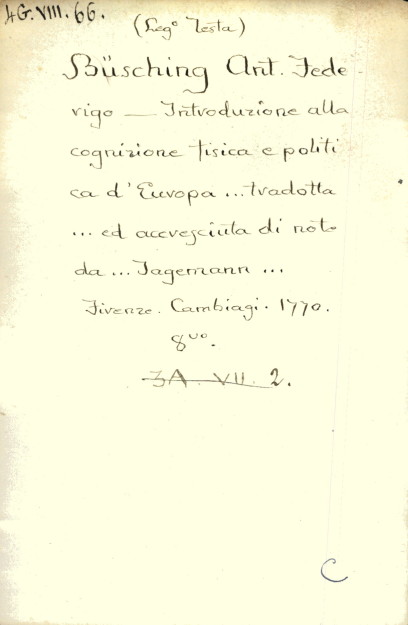 4G.VIII.66.
(Leg° Testa)
Büsching Ant. Fede-
rigo — Introduzione alla
cognizione fisica e politi
ca d'Europa ... tradotta
... ed accresciuta di note
da ... Jagemann ...
Firenze. Cambiagi. 1770.
8vo.
3A. VII. 2.
C